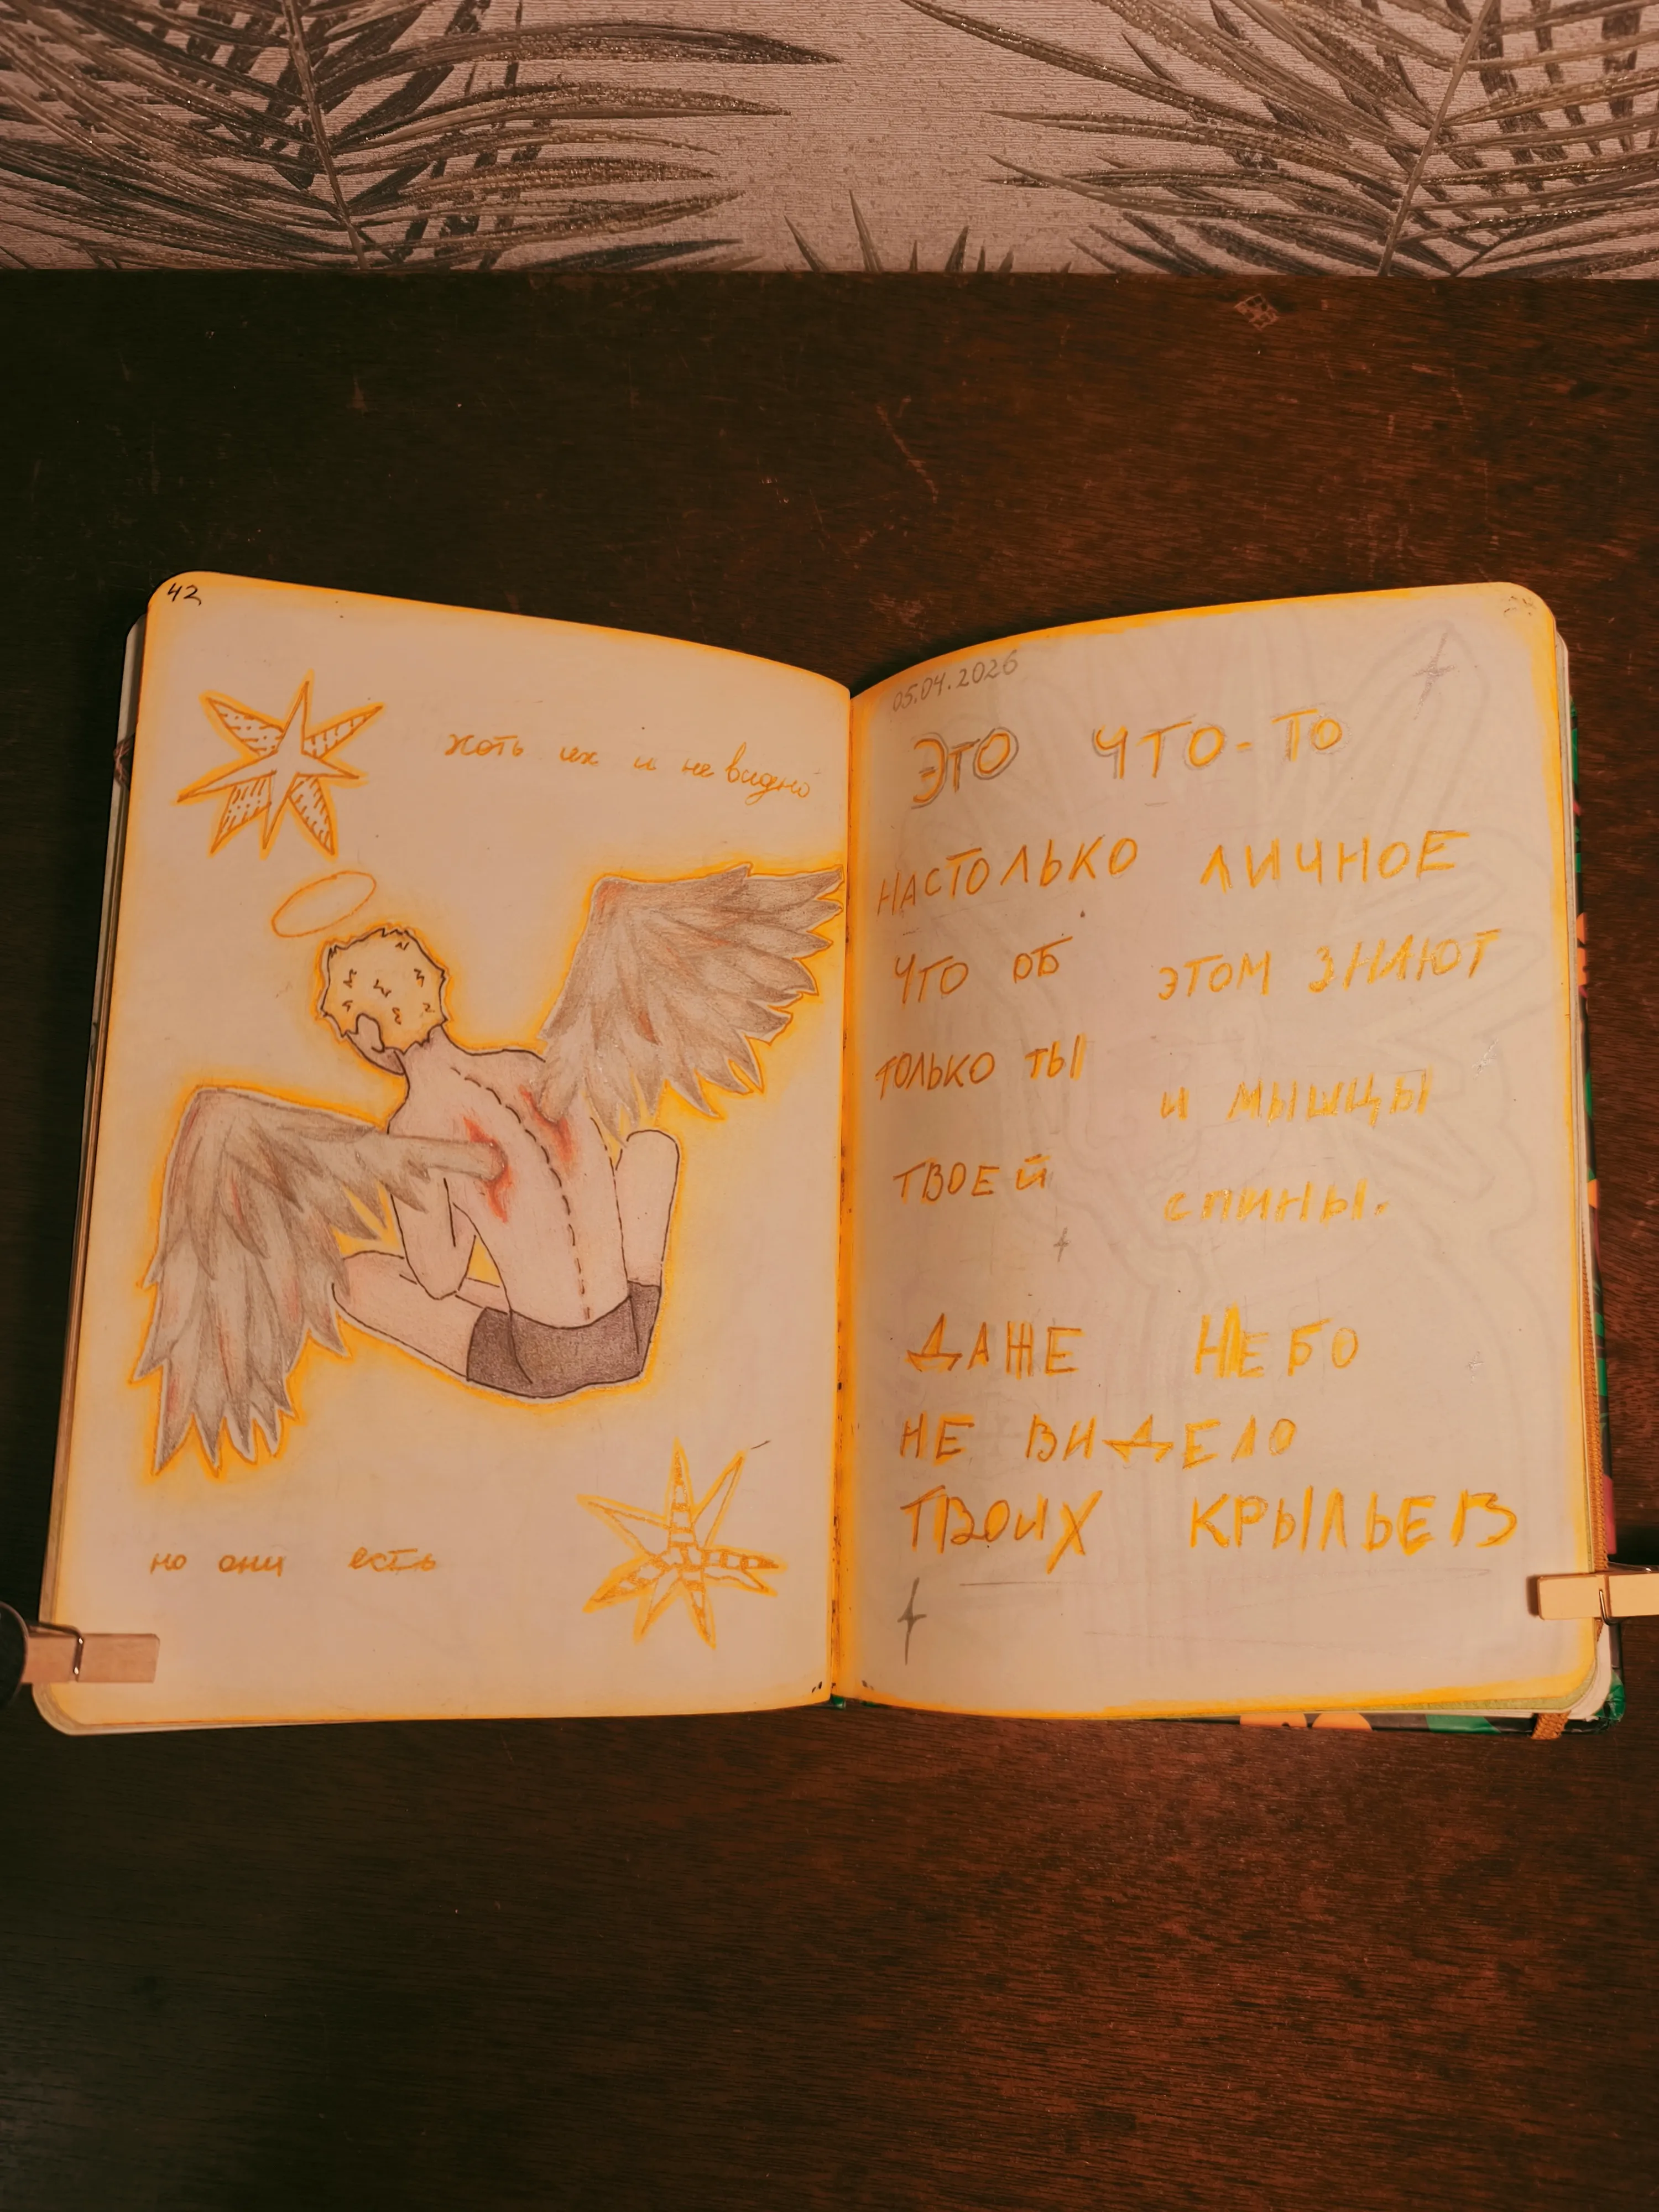 42
хоть их и не видно
но они есть
05.04.2026
ЭТО ЧТО-ТО
НАСТОЛЬКО ЛИЧНОЕ
ЧТО ОБ ЭТОМ ЗНАЮТ
ТОЛЬКО ТЫ И МЫШЦЫ
ТВОЕЙ СПИНЫ.
ДАЖЕ НЕБО
НЕ ВИДЕЛО
ТВОИХ КРЫЛЬЕВ